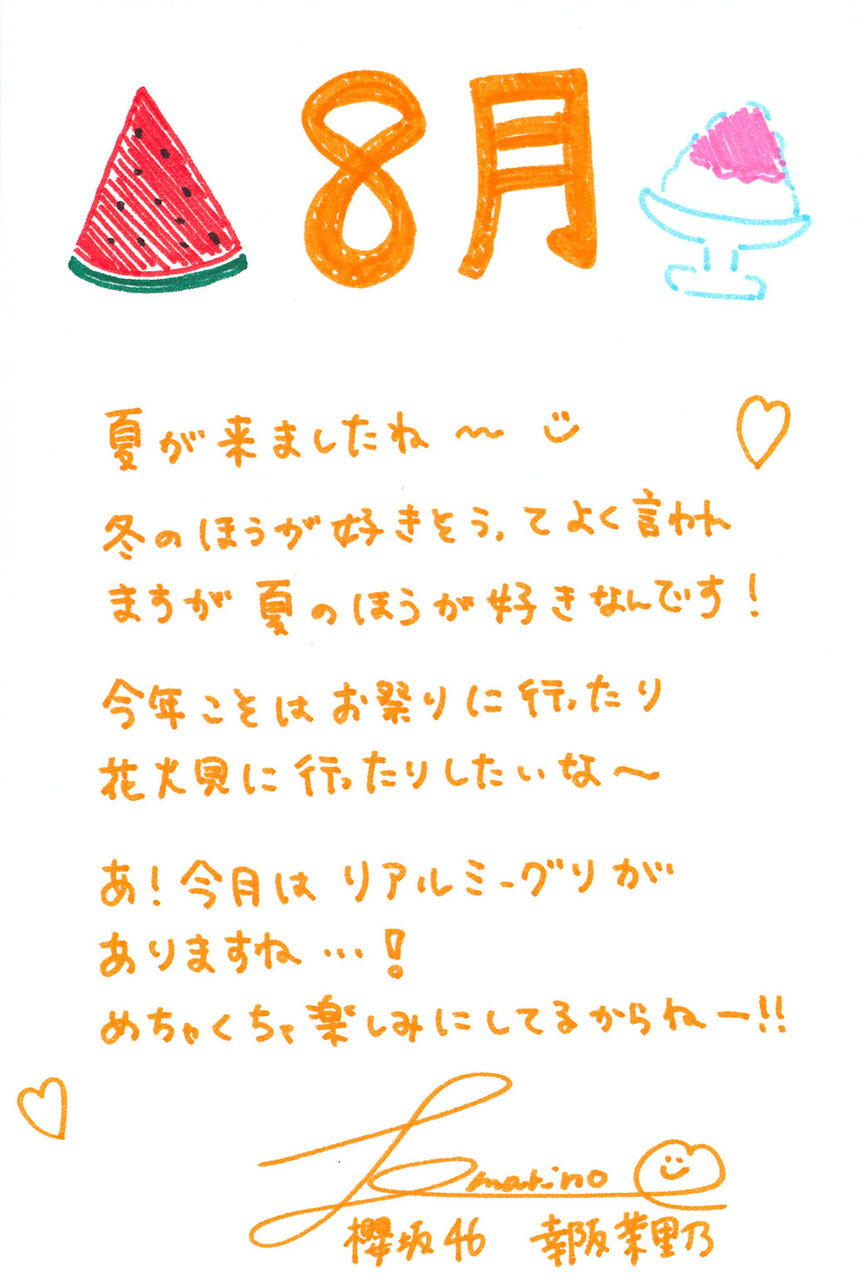 8月
夏が来ましたね〜
冬のほうが好きそう、てよく言われ
ますが夏のほうが好きなんです！
今年ことはお祭りに行ったり
花火見に行ったりしたいな〜
あ！今月はリアルミーグリが
ありますね…！
めちゃくちゃ楽しみにしてるからねー!!
marino
櫻坂46 幸阪茉里乃